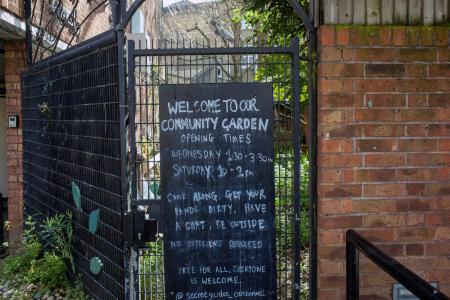 WELCOME TO OUR
COMMUNITY GARDEN
OPENING TIMES
WEDNESDAY 1.30-3.30pm
SATURDAY 10-2pm
COME ALONG, GET YOUR
HANDS DIRTY, HAVE
A CHAT, BE OUTSIDE
NO EXPERIENCE REQUIRED
FREE FOR ALL, EVERYONE
IS WELCOME.
@secretgarden_camberwell